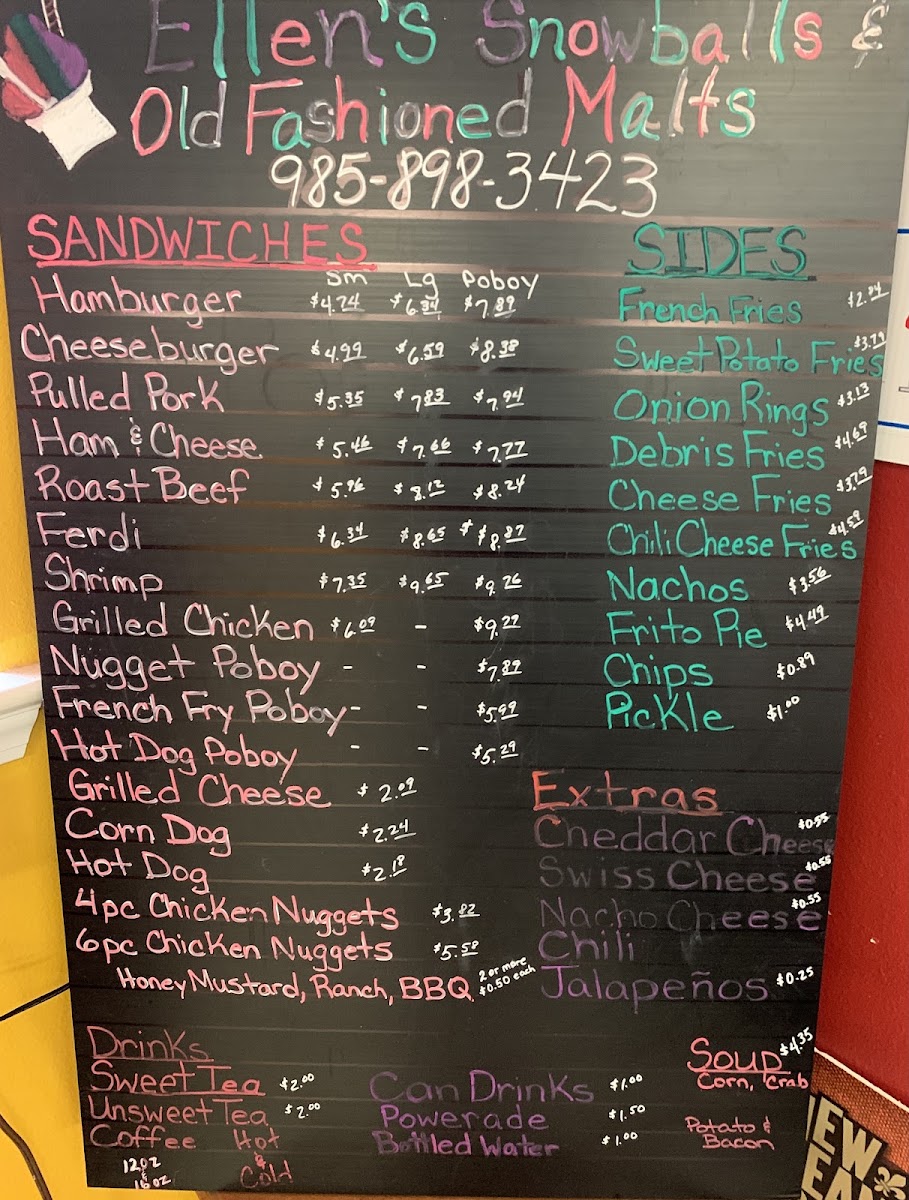 Ellen's Snowballs &
Old Fashioned Malts
985-898-3423
SANDWICHES
Sm Lg Poboy
Hamburger $4.74 $6.34 $7.89
Cheeseburger $4.99 $6.59 $8.38
Pulled Pork $5.35 $7.83 $7.94
Ham & Cheese $5.46 $7.66 $7.77
Roast Beef $5.96 $8.12 $8.24
Ferdi $6.34 $8.65 $ $8.87
Shrimp $7.35 $9.65 $9.26
Grilled Chicken $6.09 - $9.27
Nugget Poboy - - $7.89
French Fry Poboy - - $5.99
Hot Dog Poboy - - $5.29
Grilled Cheese $2.09
Corn Dog $2.24
Hot Dog $2.18
4pc Chicken Nuggets $3.82
6pc Chicken Nuggets $5.58
Honey Mustard, Ranch, BBQ 2 or more
$0.50 each
SIDES
French Fries $2.84
Sweet Potato Fries $3.79
Onion Rings $3.13
Debris Fries $4.69
Cheese Fries $3.79
Chili Cheese Fries $4.59
Nachos $3.56
Frito Pie $4.49
Chips $0.89
Pickle $1.00
Extras
Cheddar Cheese $0.55
Swiss Cheese $0.55
Nacho Cheese $0.55
Chili
Jalapeños $0.25
Drinks
Sweet Tea $2.00
Unsweet Tea $2.00
Coffee Hot
12oz & Cold
&
16oz
Can Drinks $1.00
Powerade $1.50
Bottled Water $1.00
Soup $4.35
Corn, Crab
Potato &
Bacon